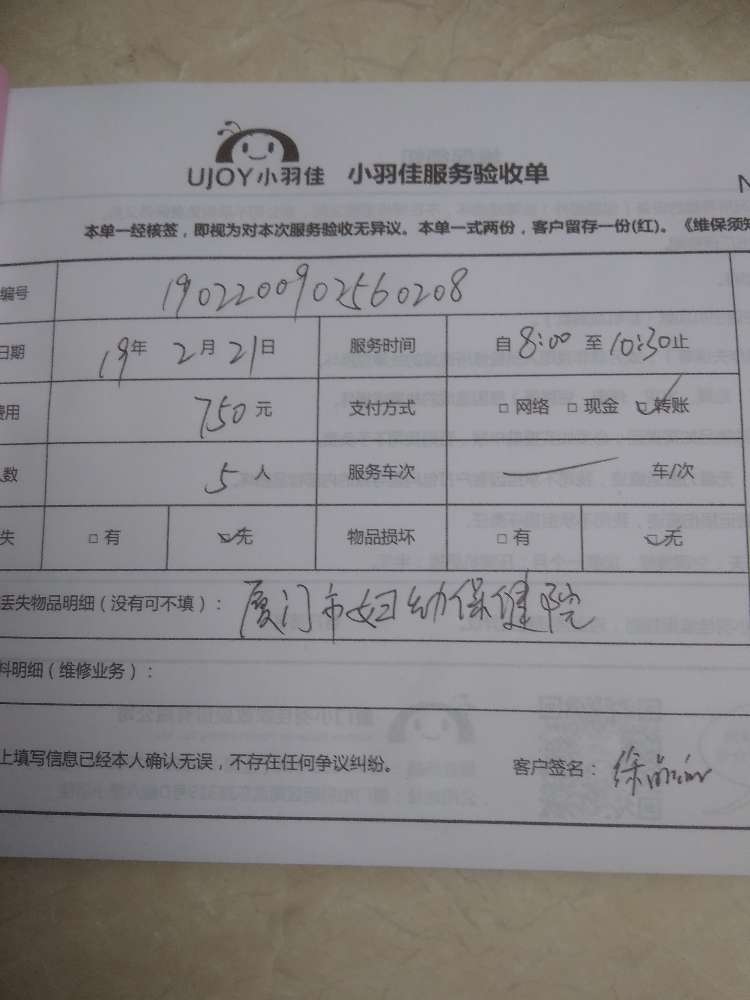 UJOY小羽佳 小羽佳服务验收单
N
本单一经核签，即视为对本次服务验收无异议。本单一式两份，客户留存一份(红)。《维保须知
编号 1902200902560208
日期 19年 2月 21日 服务时间 自 8:00 至 10:30止
费用 750元 支付方式 □ 网络 □ 现金 ☑ 转账
人数 5人 服务车次 — 车/次
失 □ 有 ☑ 无 物品损坏 □ 有 ☑ 无
丢失物品明细（没有可不填）： 厦门市妇幼保健院
料明细（维修业务）：
上填写信息已经本人确认无误，不存在任何争议纠纷。 客户签名： 徐